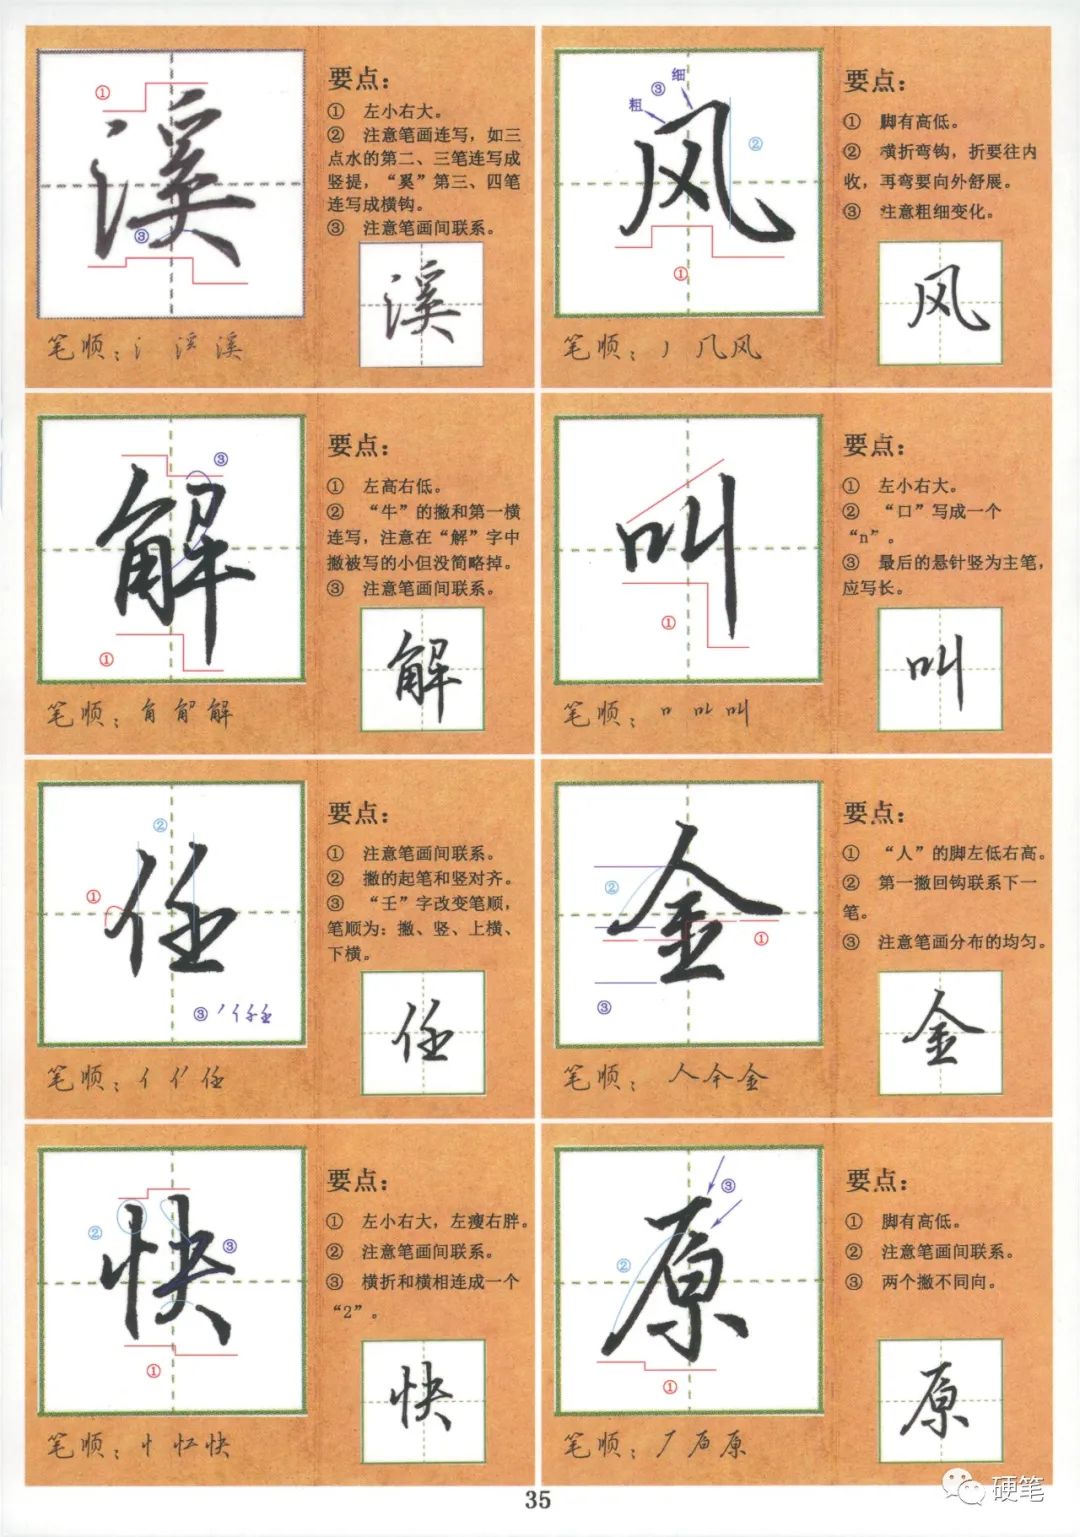 溪
①
③
要点：
① 左小右大。
② 注意笔画连写，如三
点水的第二、三笔连写成
竖提，“奚”第三、四笔
连写成横钩。
③ 注意笔画间联系。
溪
笔顺：氵 溪
风
③
细
粗
②
①
要点：
① 脚有高低。
② 横折弯钩，折要往内
收，再弯要向外舒展。
③ 注意粗细变化。
风
笔顺：丿 几 风
解
③
①
要点：
① 左高右低。
② “牛”的撇和第一横
连写，注意在“解”字中
撇被写的小但没简略掉。
③ 注意笔画间联系。
解
笔顺：角 解
叫
①
要点：
① 左小右大。
② “口”写成一个
“n”。
③ 最后的悬针竖为主笔，
应写长。
叫
笔顺：叫
任
②
①
③
要点：
① 注意笔画间联系。
② 撇的起笔和竖对齐。
③ “壬”字改变笔顺，
笔顺为：撇、竖、上横、
下横。
任
笔顺：亻 任
金
②
①
③
要点：
① “人”的脚左低右高。
② 第一撇回钩联系下一
笔。
③ 注意笔画分布的均匀。
金
笔顺：人 金
快
②
③
①
要点：
① 左小右大，左瘦右胖。
② 注意笔画间联系。
③ 横折和横相连成一个
“2”。
快
笔顺：忄 快
原
③
②
①
要点：
① 脚有高低。
② 注意笔画间联系。
③ 两个撇不同向。
原
笔顺：厂 原
35
硬笔